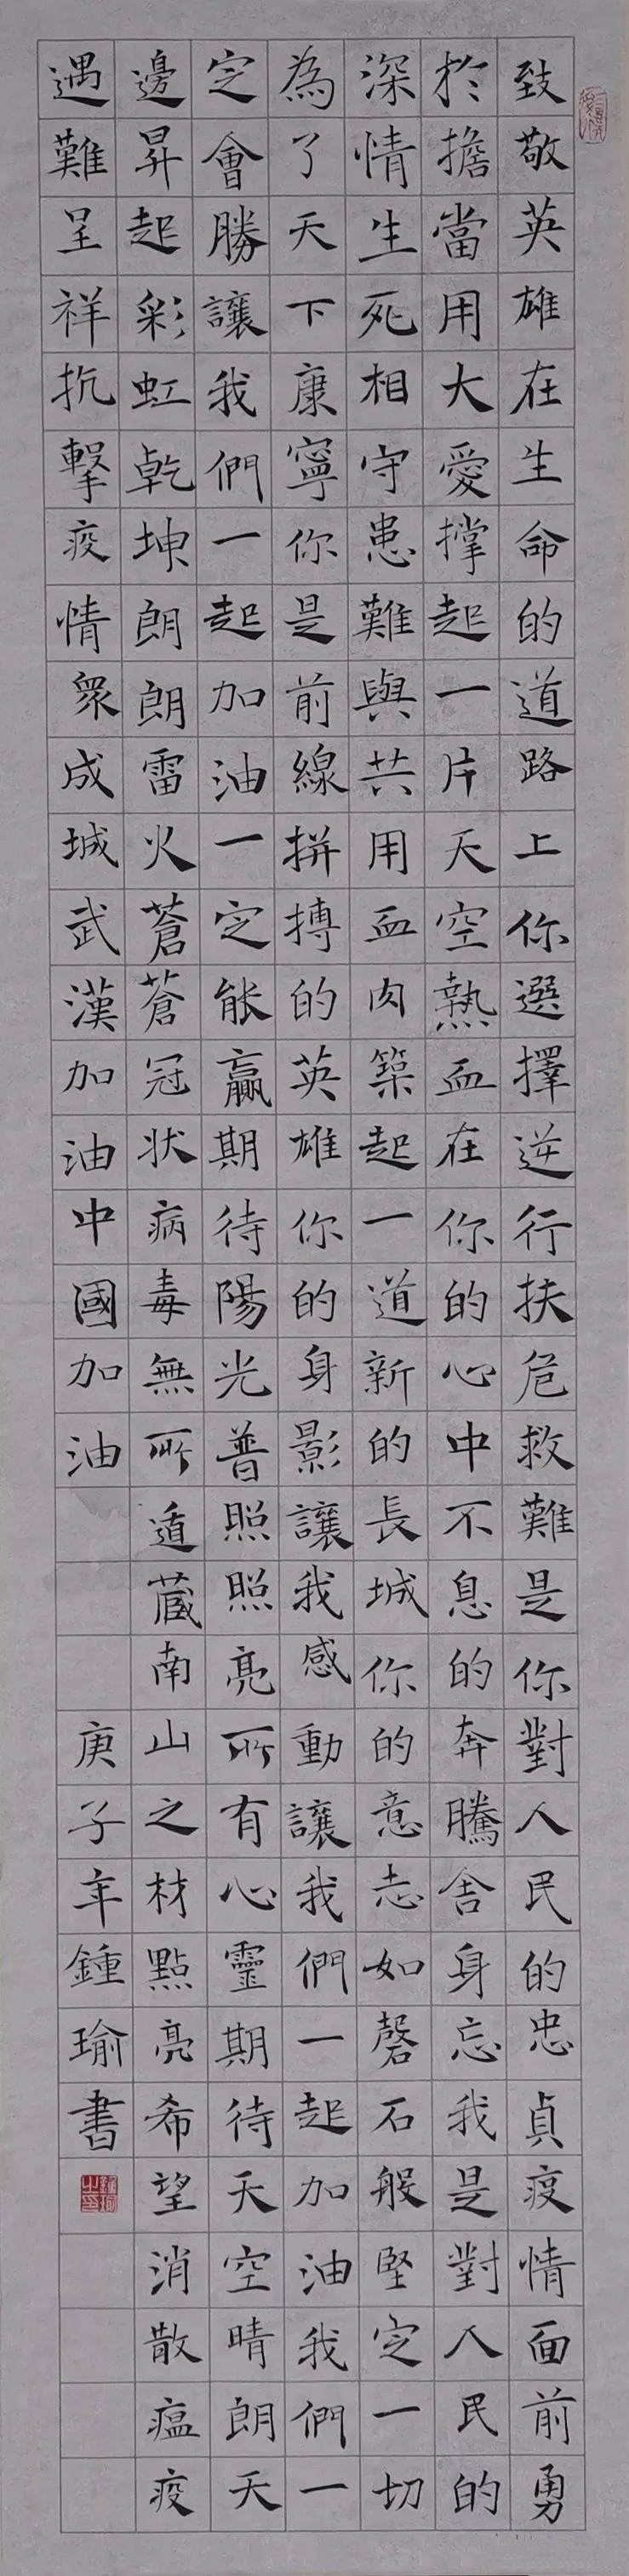 致敬英雄在生命的道路上你選擇逆行扶危救難是你對人民的忠貞疫情面前勇
於擔當用大愛撐起一片天空熱血在你的心中不息的奔騰舍身忘我是對人民的
深情生死相守患難與共用血肉築起一道新的長城你的意志如磬石般堅定一切
為了天下康寧你是前線拼搏的英雄你的身影讓我感動讓我們一起加油我們一
定會勝讓我們一起加油一定能贏期待陽光普照照亮所有心靈期待天空晴朗天
邊昇起彩虹乾坤朗朗雷火蒼蒼冠狀病毒無所遁蔵南山之材點亮希望消散瘟疫
遇難呈祥抗擊疫情眾成城武漢加油中國加油
庚子年鍾瑜書